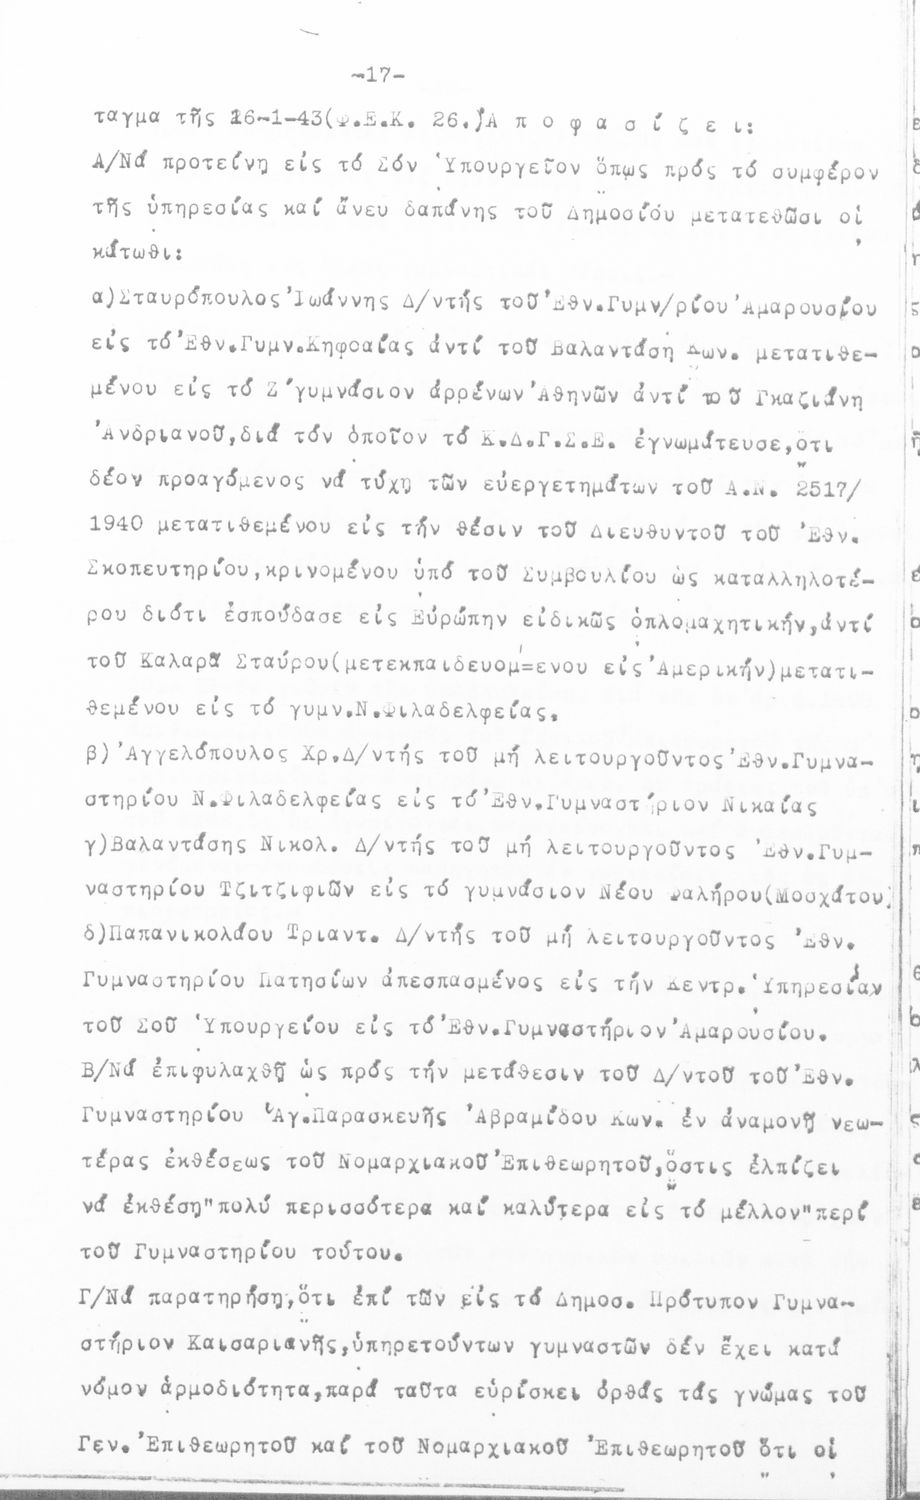 -17-
ταγμα τῆς 16-1-43(Φ.Ε.Κ. 26.)Α π ο φ α σ ί ζ ε ι:
Α/Νά προτείνῃ εἰς τό Σόν Ὑπουργεῖον ὅπως πρός τό συμφέρον
τῆς ὑπηρεσίας καί ἄνευ δαπάνης τοῦ Δημοσίου μετατεθῶσι οἱ
κάτωθι:
α)Σταυρόπουλος Ἰωάννης Δ/ντής τοῦ Ἐθν.Γυμν/ρίου Ἀμαρουσίου
εἰς τό Ἐθν.Γυμν.Κηφσαίας ἀντί τοῦ Βαλαντάση Διον. μετατιθε-
μένου εἰς τό Ζ΄γυμνάσιον ἀρρένων Ἀθηνῶν ἀντί τοῦ Γκαζιάνη
Ἀνδριανοῦ,διά τόν ὁποῖον τό Κ.Δ.Γ.Σ.Ε. ἐγνωμάτευσε,ὅτι
δέον προαγόμενος νά τύχῃ τῶν εὐεργετημάτων τοῦ Α.Ν. 2517/
1940 μετατιθεμένου εἰς τήν θέσιν τοῦ Διευθυντοῦ τοῦ Ἐθν.
Σκοπευτηρίου,κρινομένου ὑπό τοῦ Συμβουλίου ὡς καταλληλοτέ-
ρου διότι ἐσπούδασε εἰς Εὐρώπην εἰδικῶς ὁπλομαχητικήν,ἀντί
τοῦ Καλαρᾶ Σταύρου(μετεκπαιδευομ=ενου εἰς Ἀμερικήν)μετατι-
θεμένου εἰς τό γυμν.Ν.Φιλαδελφείας.
β)Ἀγγελόπουλος Χρ.Δ/ντής τοῦ μή λειτουργοῦντος Ἐθν.Γυμνα-
στηρίου Ν.Φιλαδελφείας εἰς τό Ἐθν.Γυμναστήριον Νικαίας
γ)Βαλαντάσης Νικολ. Δ/ντής τοῦ μή λειτουργοῦντος Ἐθν.Γυμ-
ναστηρίου Τζιτζιφιῶν εἰς τό γυμνάσιον Νέου Φαλήρου(Μοσχάτου)
δ)Παπανικολάου Τριαντ. Δ/ντής τοῦ μή λειτουργοῦντος Ἐθν.
Γυμναστηρίου Πατησίων ἀπεσπασμένος εἰς τήν Κεντρ.Ὑπηρεσίαν
τοῦ Σοῦ Ὑπουργείου εἰς τό Ἐθν.Γυμναστήριον Ἀμαρουσίου.
Β/Νά ἐπιφυλαχθῇ ὡς πρός τήν μετάθεσιν τοῦ Δ/ντοῦ τοῦ Ἐθν.
Γυμναστηρίου Ἁγ.Παρασκευῆς Ἀβραμίδου Κων. ἐν ἀναμονῇ νεω-
τέρας ἐκθέσεως τοῦ Νομαρχιακοῦ Ἐπιθεωρητοῦ,ὅστις ἐλπίζει
νά ἐκθέσῃ"πολύ περισσότερα καί καλύτερα εἰς τό μέλλον"περί
τοῦ Γυμναστηρίου τούτου.
Γ/Νά παρατηρήσῃ,ὅτι ἐπί τῶν εἰς τό Δημοσ. Πρότυπον Γυμνα-
στήριον Καισαριανῆς,ὑπηρετούντων γυμναστῶν δέν ἔχει κατά
νόμον ἁρμοδιότητα,παρά ταῦτα εὑρίσκει ὀρθάς τάς γνώμας τοῦ
Γεν.Ἐπιθεωρητοῦ καί τοῦ Νομαρχιακοῦ Ἐπιθεωρητοῦ ὅτι οἱ